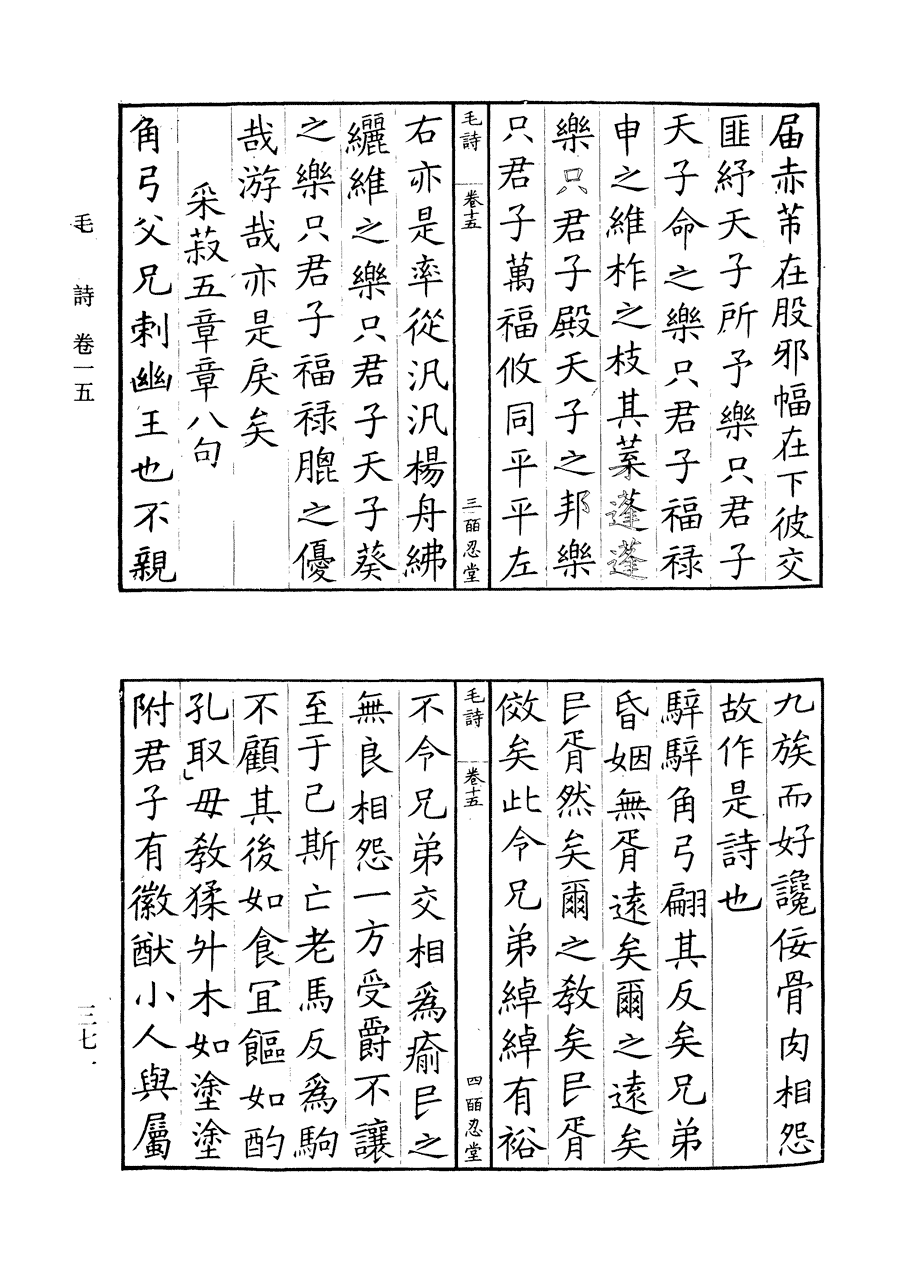 届赤芾在股邪幅在下彼交
匪紓天子所予樂只君子
天子命之樂只君子福禄
申之維柞之枝其葉蓬蓬
樂只君子殿天子之邦樂
只君子萬福攸同平平左
毛詩 卷十五 三 皕忍堂
右亦是率從汎汎楊舟紼
纚維之樂只君子天子葵
之樂只君子福禄膍之優
哉游哉亦是戾矣
采菽五章章八句
角弓父兄刺幽王也不親
毛詩卷一五
九族而好讒佞骨肉相怨
故作是詩也
騂騂角弓翩其反矣兄弟
昏姻無胥遠矣爾之遠矣
民胥然矣爾之教矣民胥
傚矣此令兄弟綽綽有裕
毛詩 卷十五 四 皕忍堂
不令兄弟交相爲瘉民之
無良相怨一方受爵不讓
至于己斯亡老馬反爲駒
不顧其後如食宜饇如酌
孔取毋教猱升木如塗塗
附君子有徽猷小人與屬
三七一